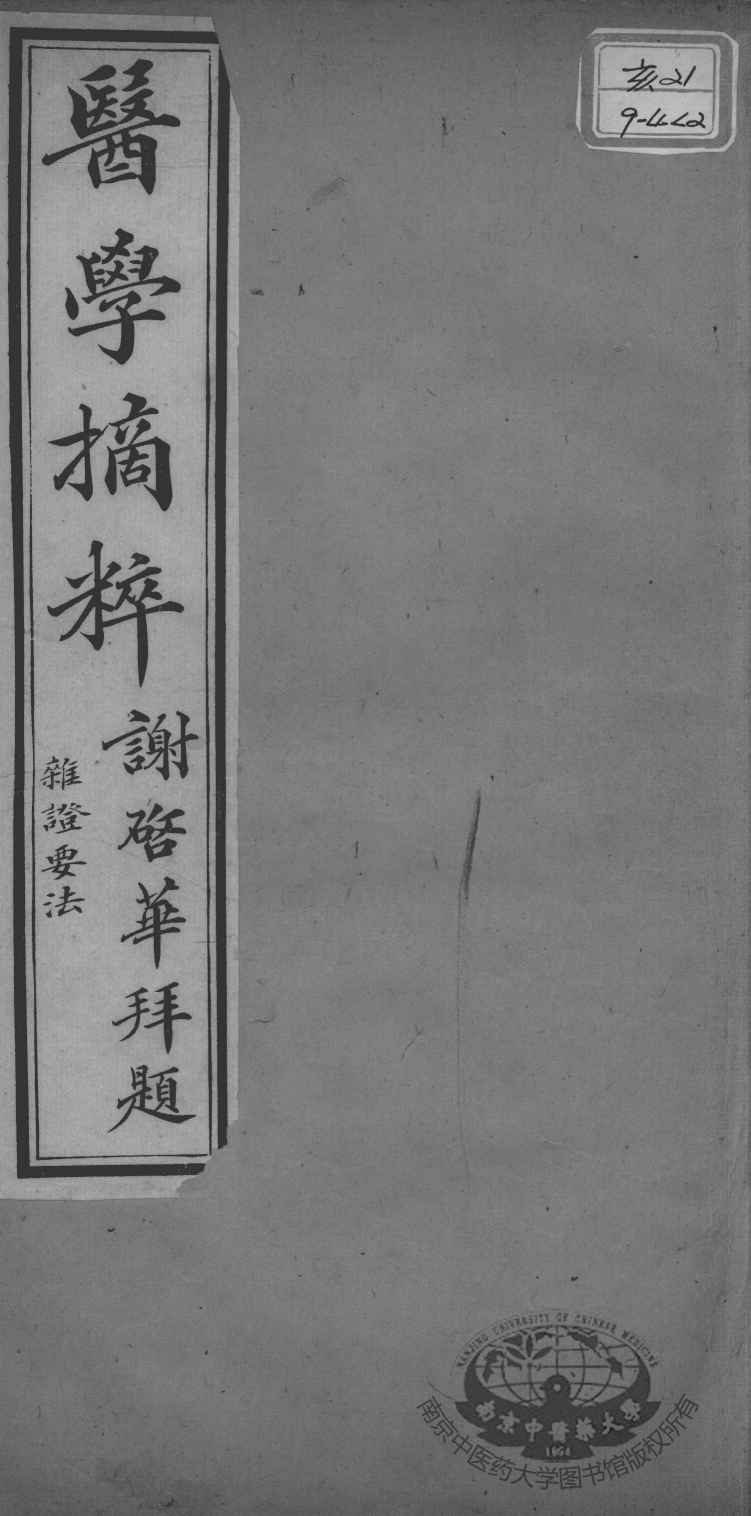 亥21
9-4<2
醫學摘粹
謝啓華拜題
雜證要法
NANJING UNIVERSITY OF CHINESE MEDICINE
南京中醫藥大學
1954
南京中医药大学图书馆版权所有